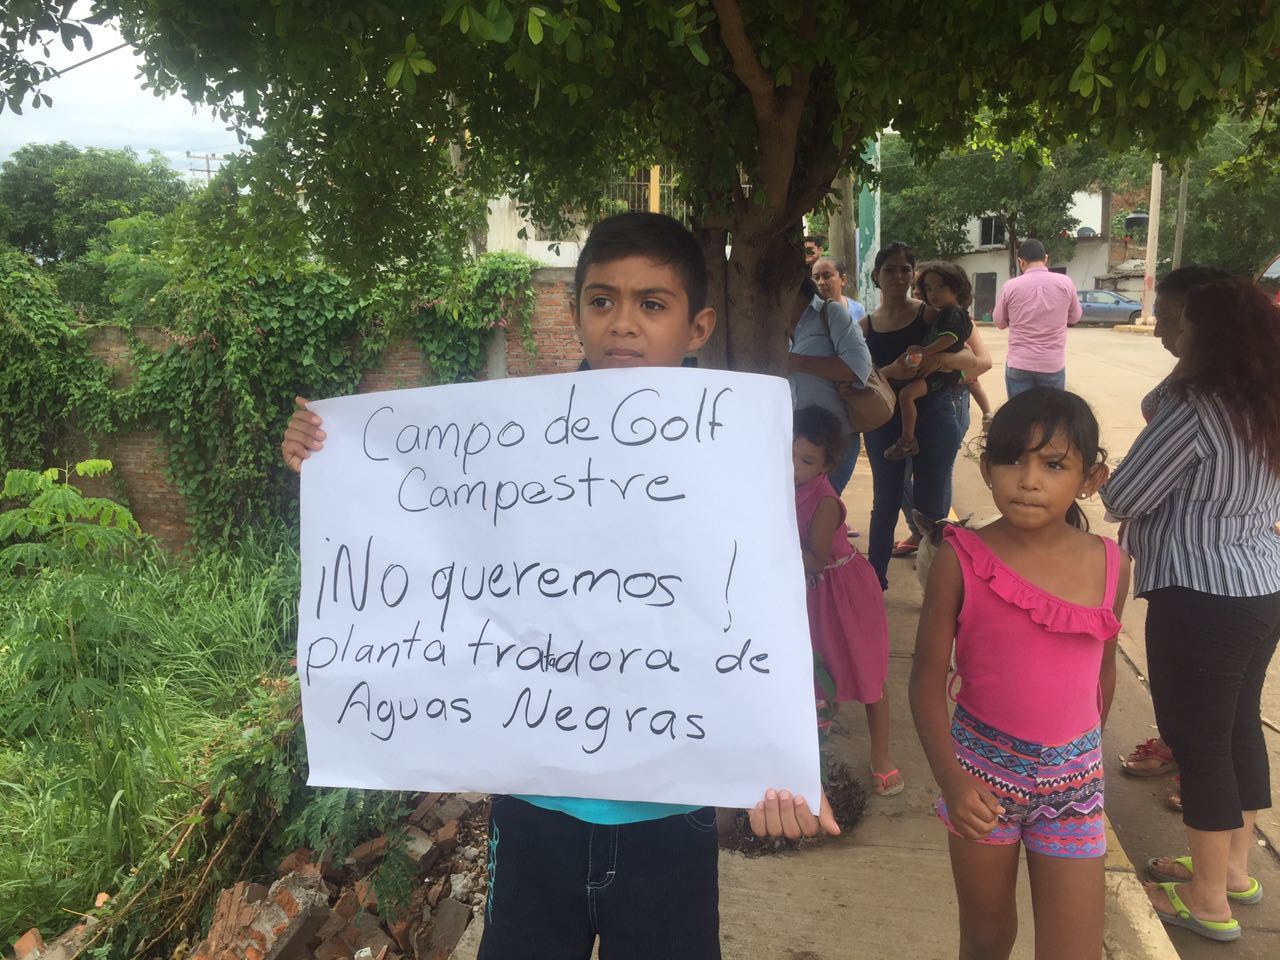 Campo de Golf
Campestre
¡No queremos!
planta tratadora de
Aguas Negras